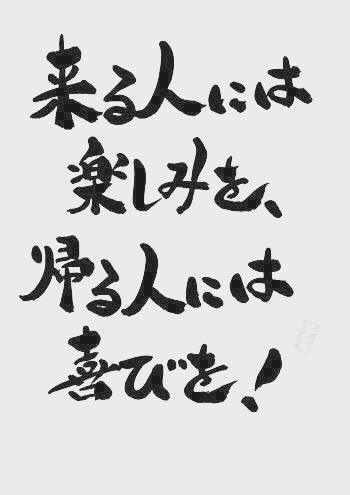 来る人には
楽しみを、
帰る人には
喜びを!